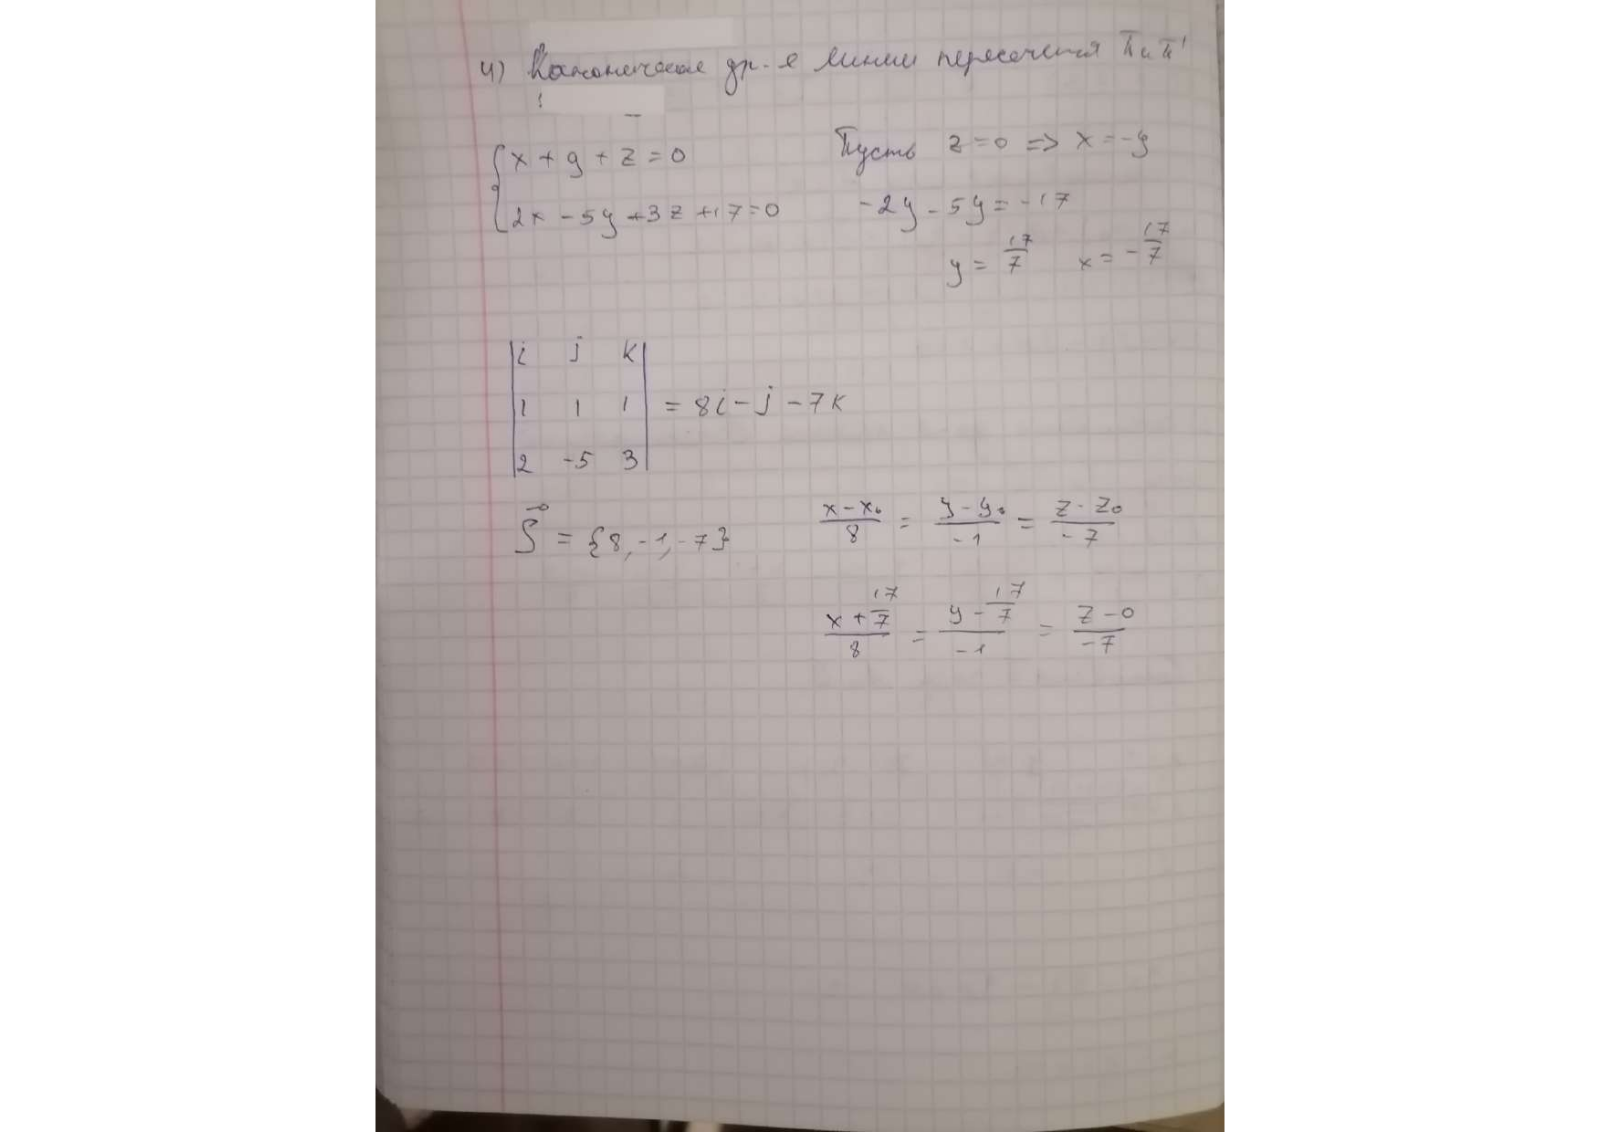 4) Канонические ур-я линии пересечения π и π'
{ x + y + z = 0
2x - 5y + 3z + 17 = 0
Пусть z = 0 => x = -y
-2y - 5y = -17
y = 17/7 x = -17/7
|i j k|
|1 1 1| = 8i - j - 7k
|2 -5 3|
S⃗ = {8, -1, -7}
(x - x₀)/8 = (y - y₀)/-1 = (z - z₀)/-7
(x + 17/7)/8 = (y - 17/7)/-1 = (z - 0)/-7